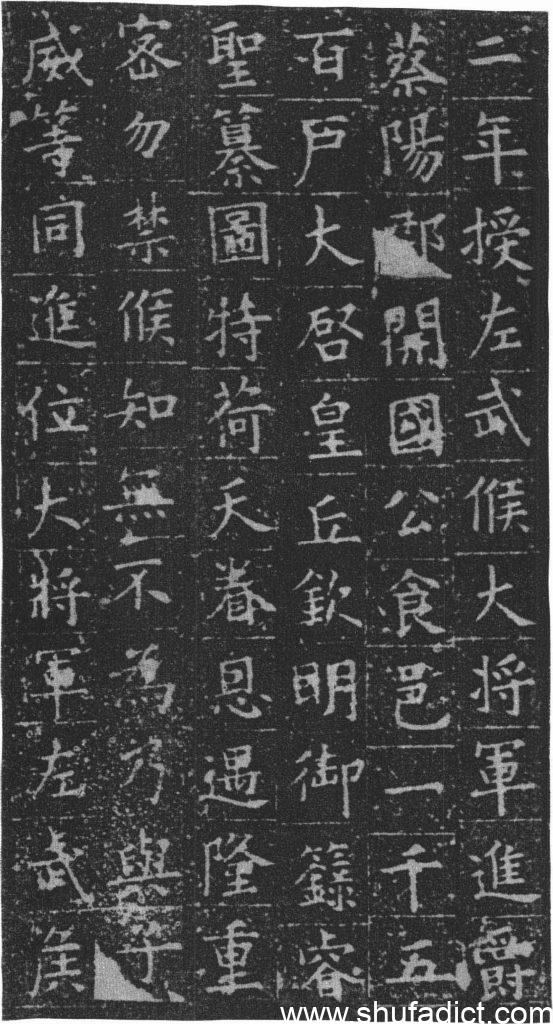 二年授左武候大將軍進爵
蔡陽郡開國公食邑一千五
百戶大啓皇丘欽明御籙睿
聖纂圖特荷天眷恩遇隆重
密勿禁候知無不為乃與子
威等同進位大將軍左武侯
www.shufadict.com